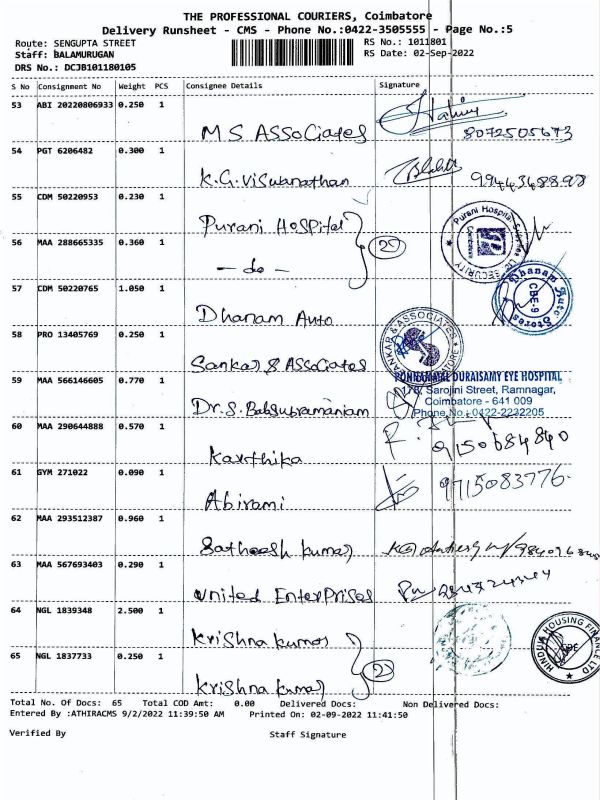 THE PROFESSIONAL COURIERS, Coimbatore
Delivery Runsheet - CMS - Phone No.:0422-3505555 - Page No.:5
Route: SENGUPTA STREET RS No.: 1011801
Staff: BALAMURUGAN RS Date: 02-Sep-2022
DRS No.: DCJB101180105
S No Consignment No Weight PCS Consignee Details Signature
53 ABI 20220806933 0.250 1
M S ASSociates 8072505673
54 PGT 6206482 0.300 1
K.G.Viswanathan 9944368898
55 CDM 50220953 0.230 1
Purani Hospital
Purani Hospital
SECURITY
Coimbatore
56 MAA 288665335 0.360 1
- do -
57 CDM 50220765 1.050 1
Dhanam Auto
Dhanam Auto Stores
CBE-9
58 PRO 13405769 0.250 1
Sankar & ASSociates
SANKAR & ASSOCIATES
59 MAA 566146605 0.770 1
PONNAMMAL DURAISAMY EYE HOSPITAL
Sarojini Street, Ramnagar,
Coimbatore - 641 009
Phone No.:0422-2232205
Dr.S. Balsubramaniam
60 MAA 290644888 0.570 1
Karthika 9150684840
61 GYM 271022 0.090 1
Abirami 9715083776
62 MAA 293512387 0.960 1
Satheesh kumar
63 MAA 567693403 0.290 1
United EnterPrises
64 NGL 1839348 2.500 1
Krishna kumar
HINDUJA HOUSING FINANCE LTD
65 NGL 1837733 0.250 1
Krishna kumar
Total No. Of Docs: 65 Total COD Amt: 0.00 Delivered Docs: Non Delivered Docs:
Entered By :ATHIRACMS 9/2/2022 11:39:50 AM Printed On: 02-09-2022 11:41:50
Verified By Staff Signature